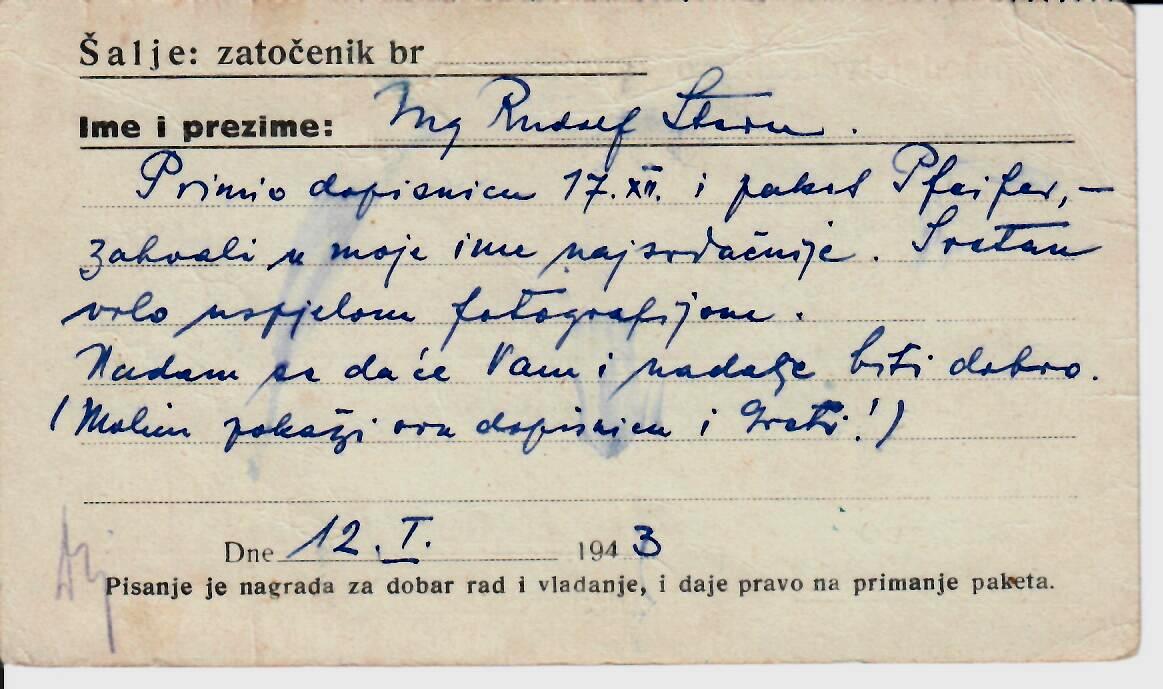 Šalje: zatočenik br
Ime i prezime: Ing Rudolf Stern.
Primio dopisnicu 17.XII. i paket Pfeifer, –
zahvali u moje ime najsrdačnije. Sretan
vrlo uspjelom fotografijom.
Nadam se da će Vam i nadalje biti dobro.
(Molim pokaži ovu dopisnicu i Greti!)
Dne 12. I. 1943
Pisanje je nagrada za dobar rad i vladanje, i daje pravo na primanje paketa.